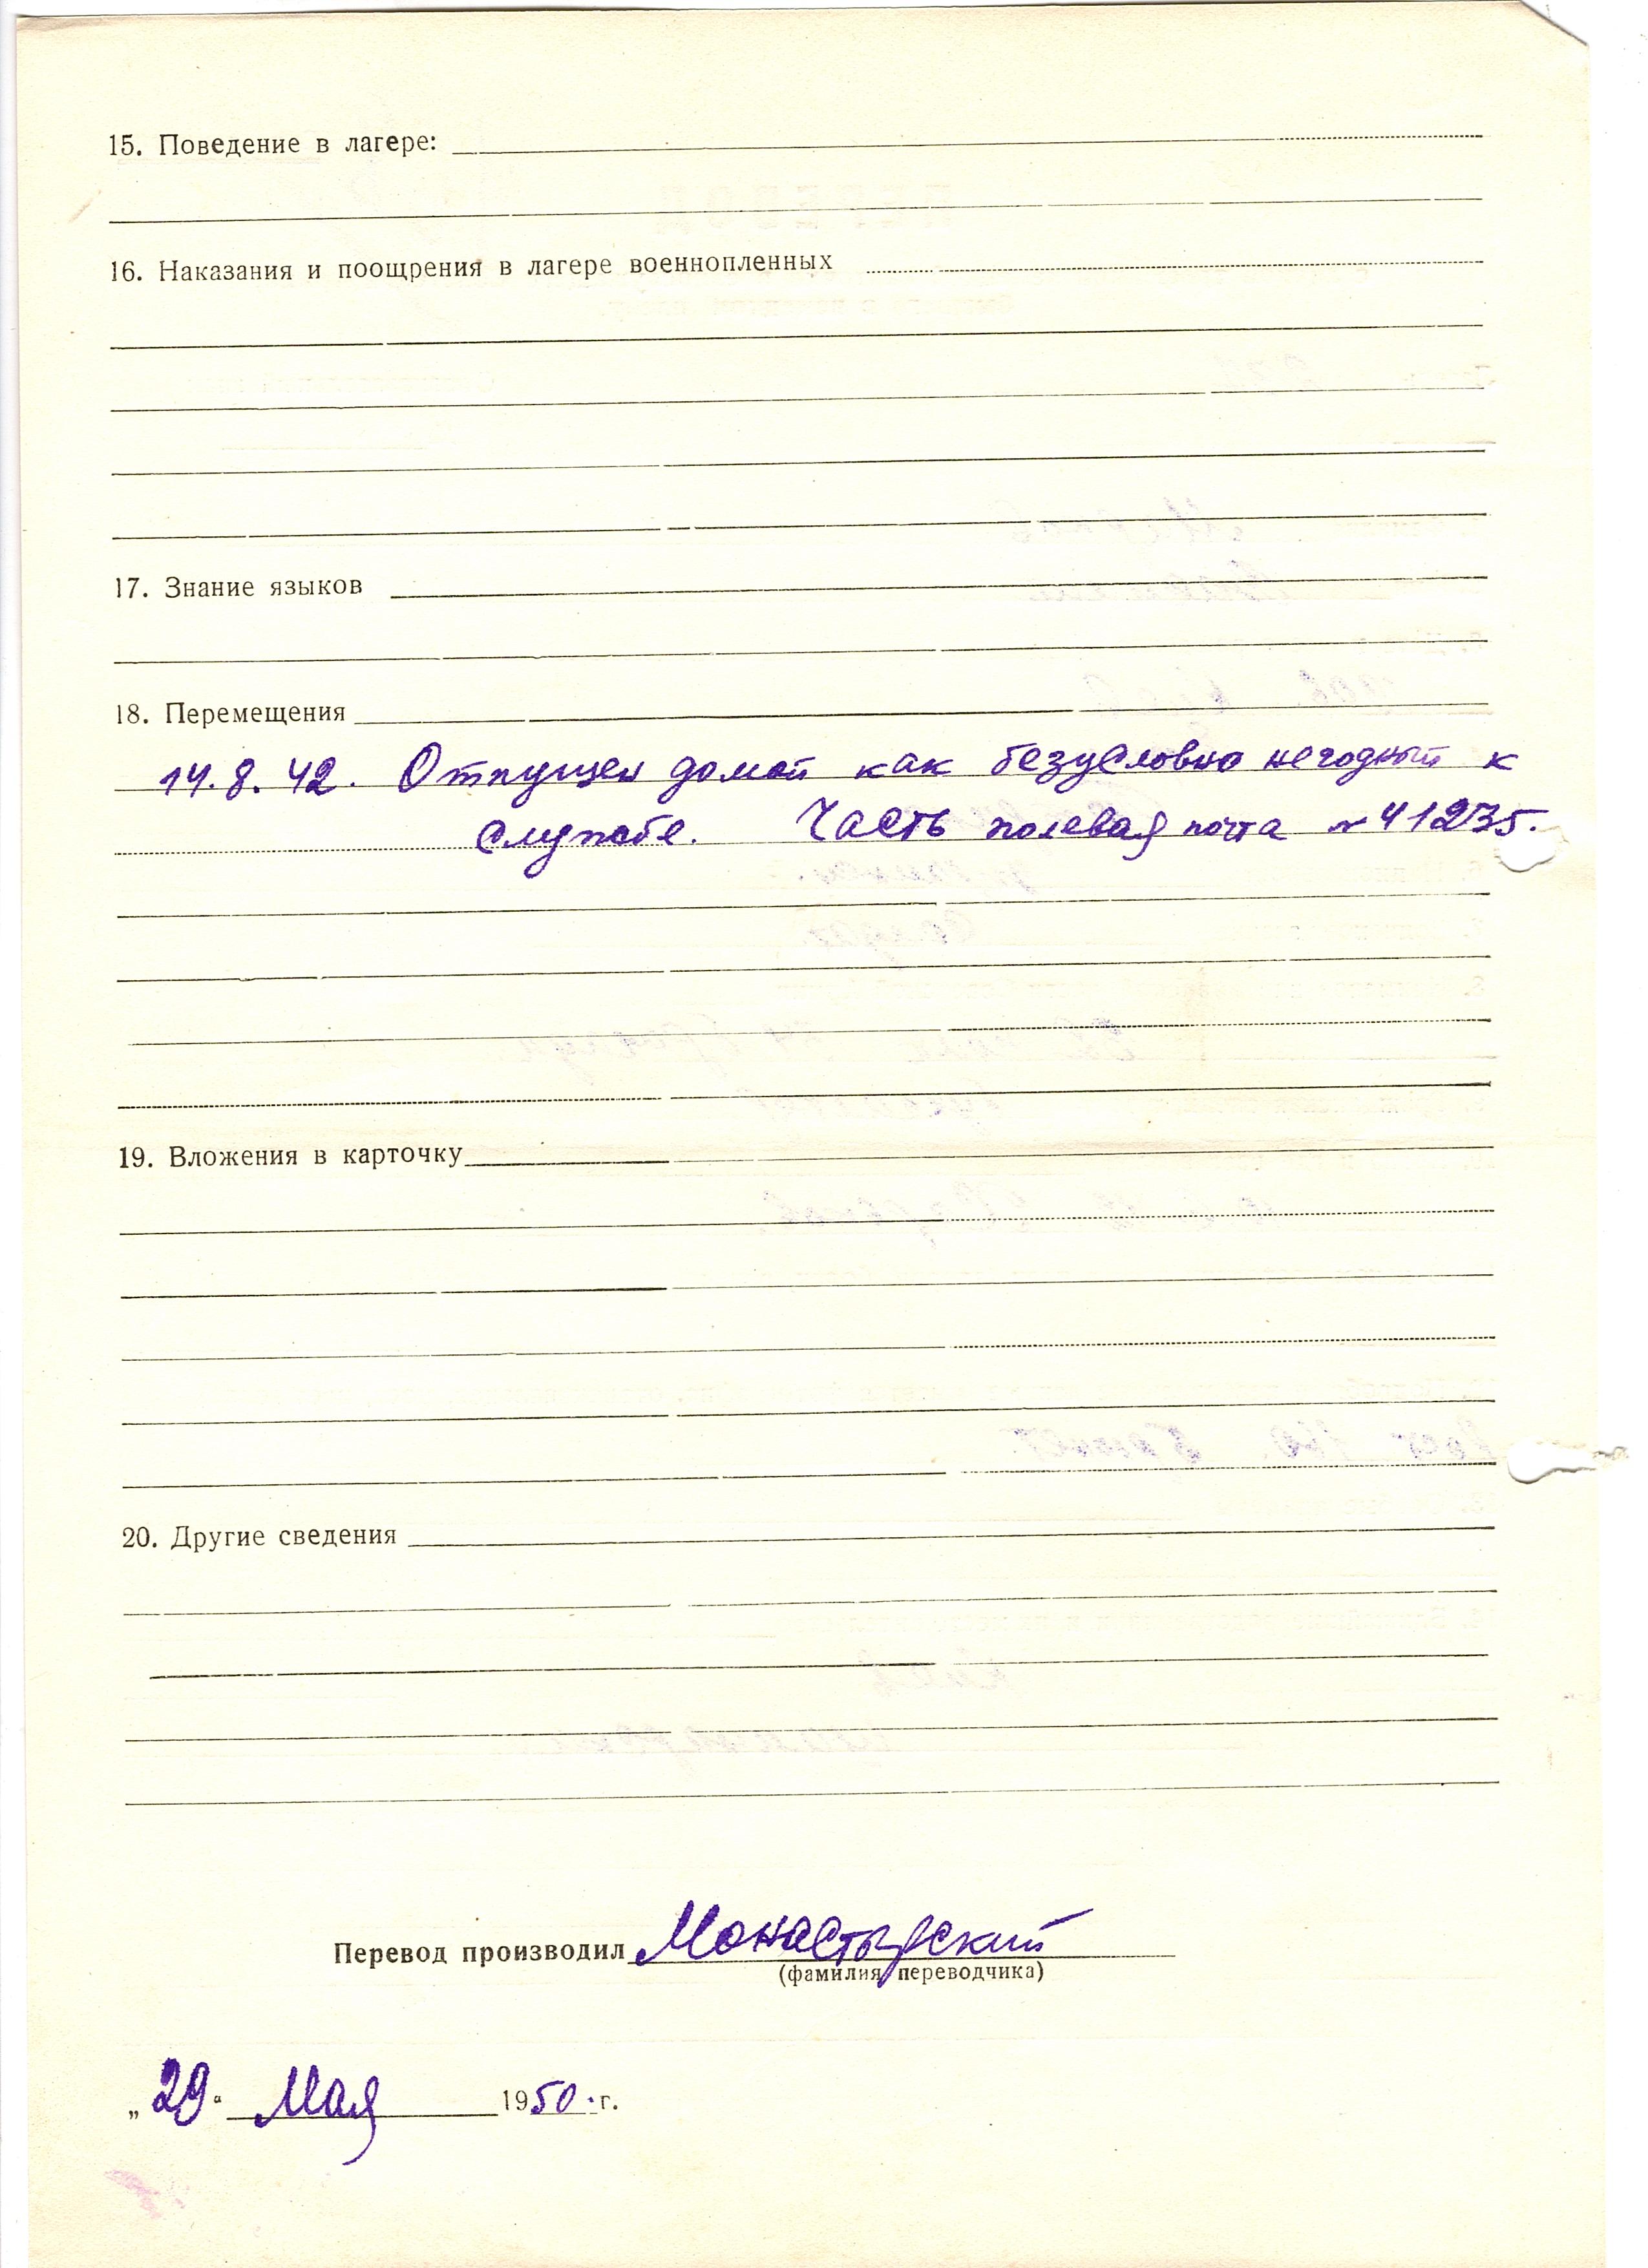 15. Поведение в лагере:
16. Наказания и поощрения в лагере военнопленных
17. Знание языков
18. Перемещения
14.8.42. Отпущен домой как безусловно негодный к
службе. Часть полевая почта № 41235.
19. Вложения в карточку
20. Другие сведения
Перевод производил Монастырский
(фамилия переводчика)
„29“ Мая 1950 г.